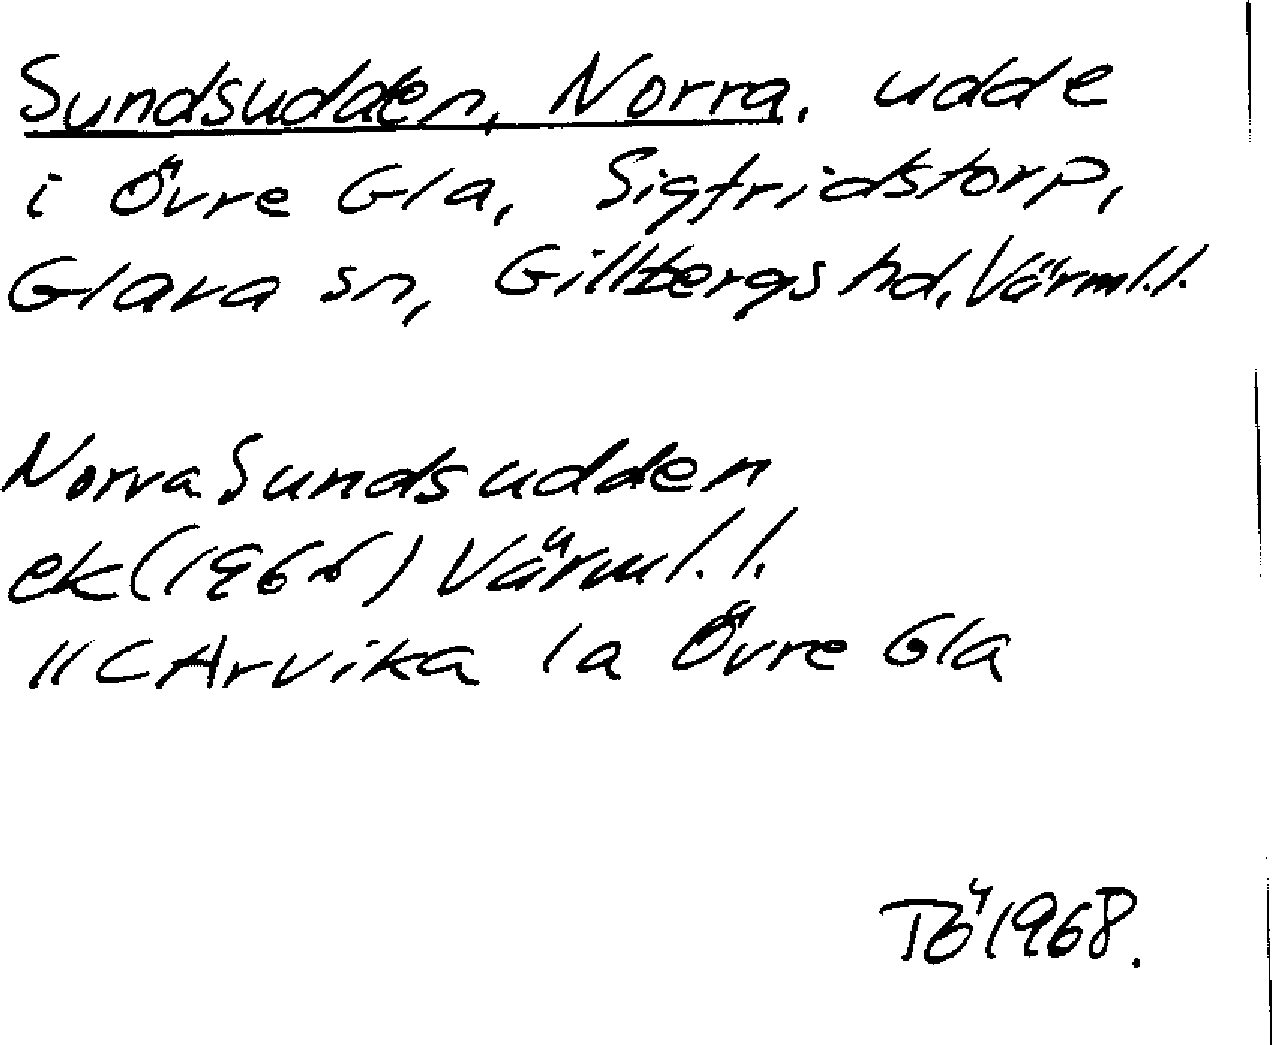 Sundsudden, Norra, udde
i Övre Gla, Sigfridstorp,
Glava sn, Gillbergs hd, Värml. l.
Norra Sundsudden
ek (1966) Värml. l.
11 C Arvika 1a Övre Gla
TÖ 1968.